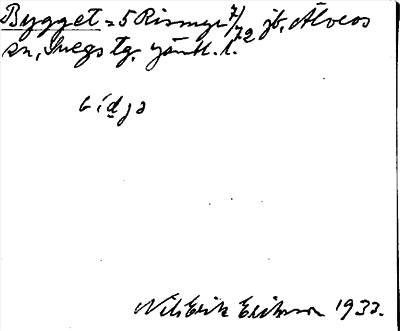 Bygget = 5 Rismyr 7/72 jb, Älvros
sn, Svegs tg, Jämtl. l.
bíd̲ja
Nils Erik Erikson 1933.